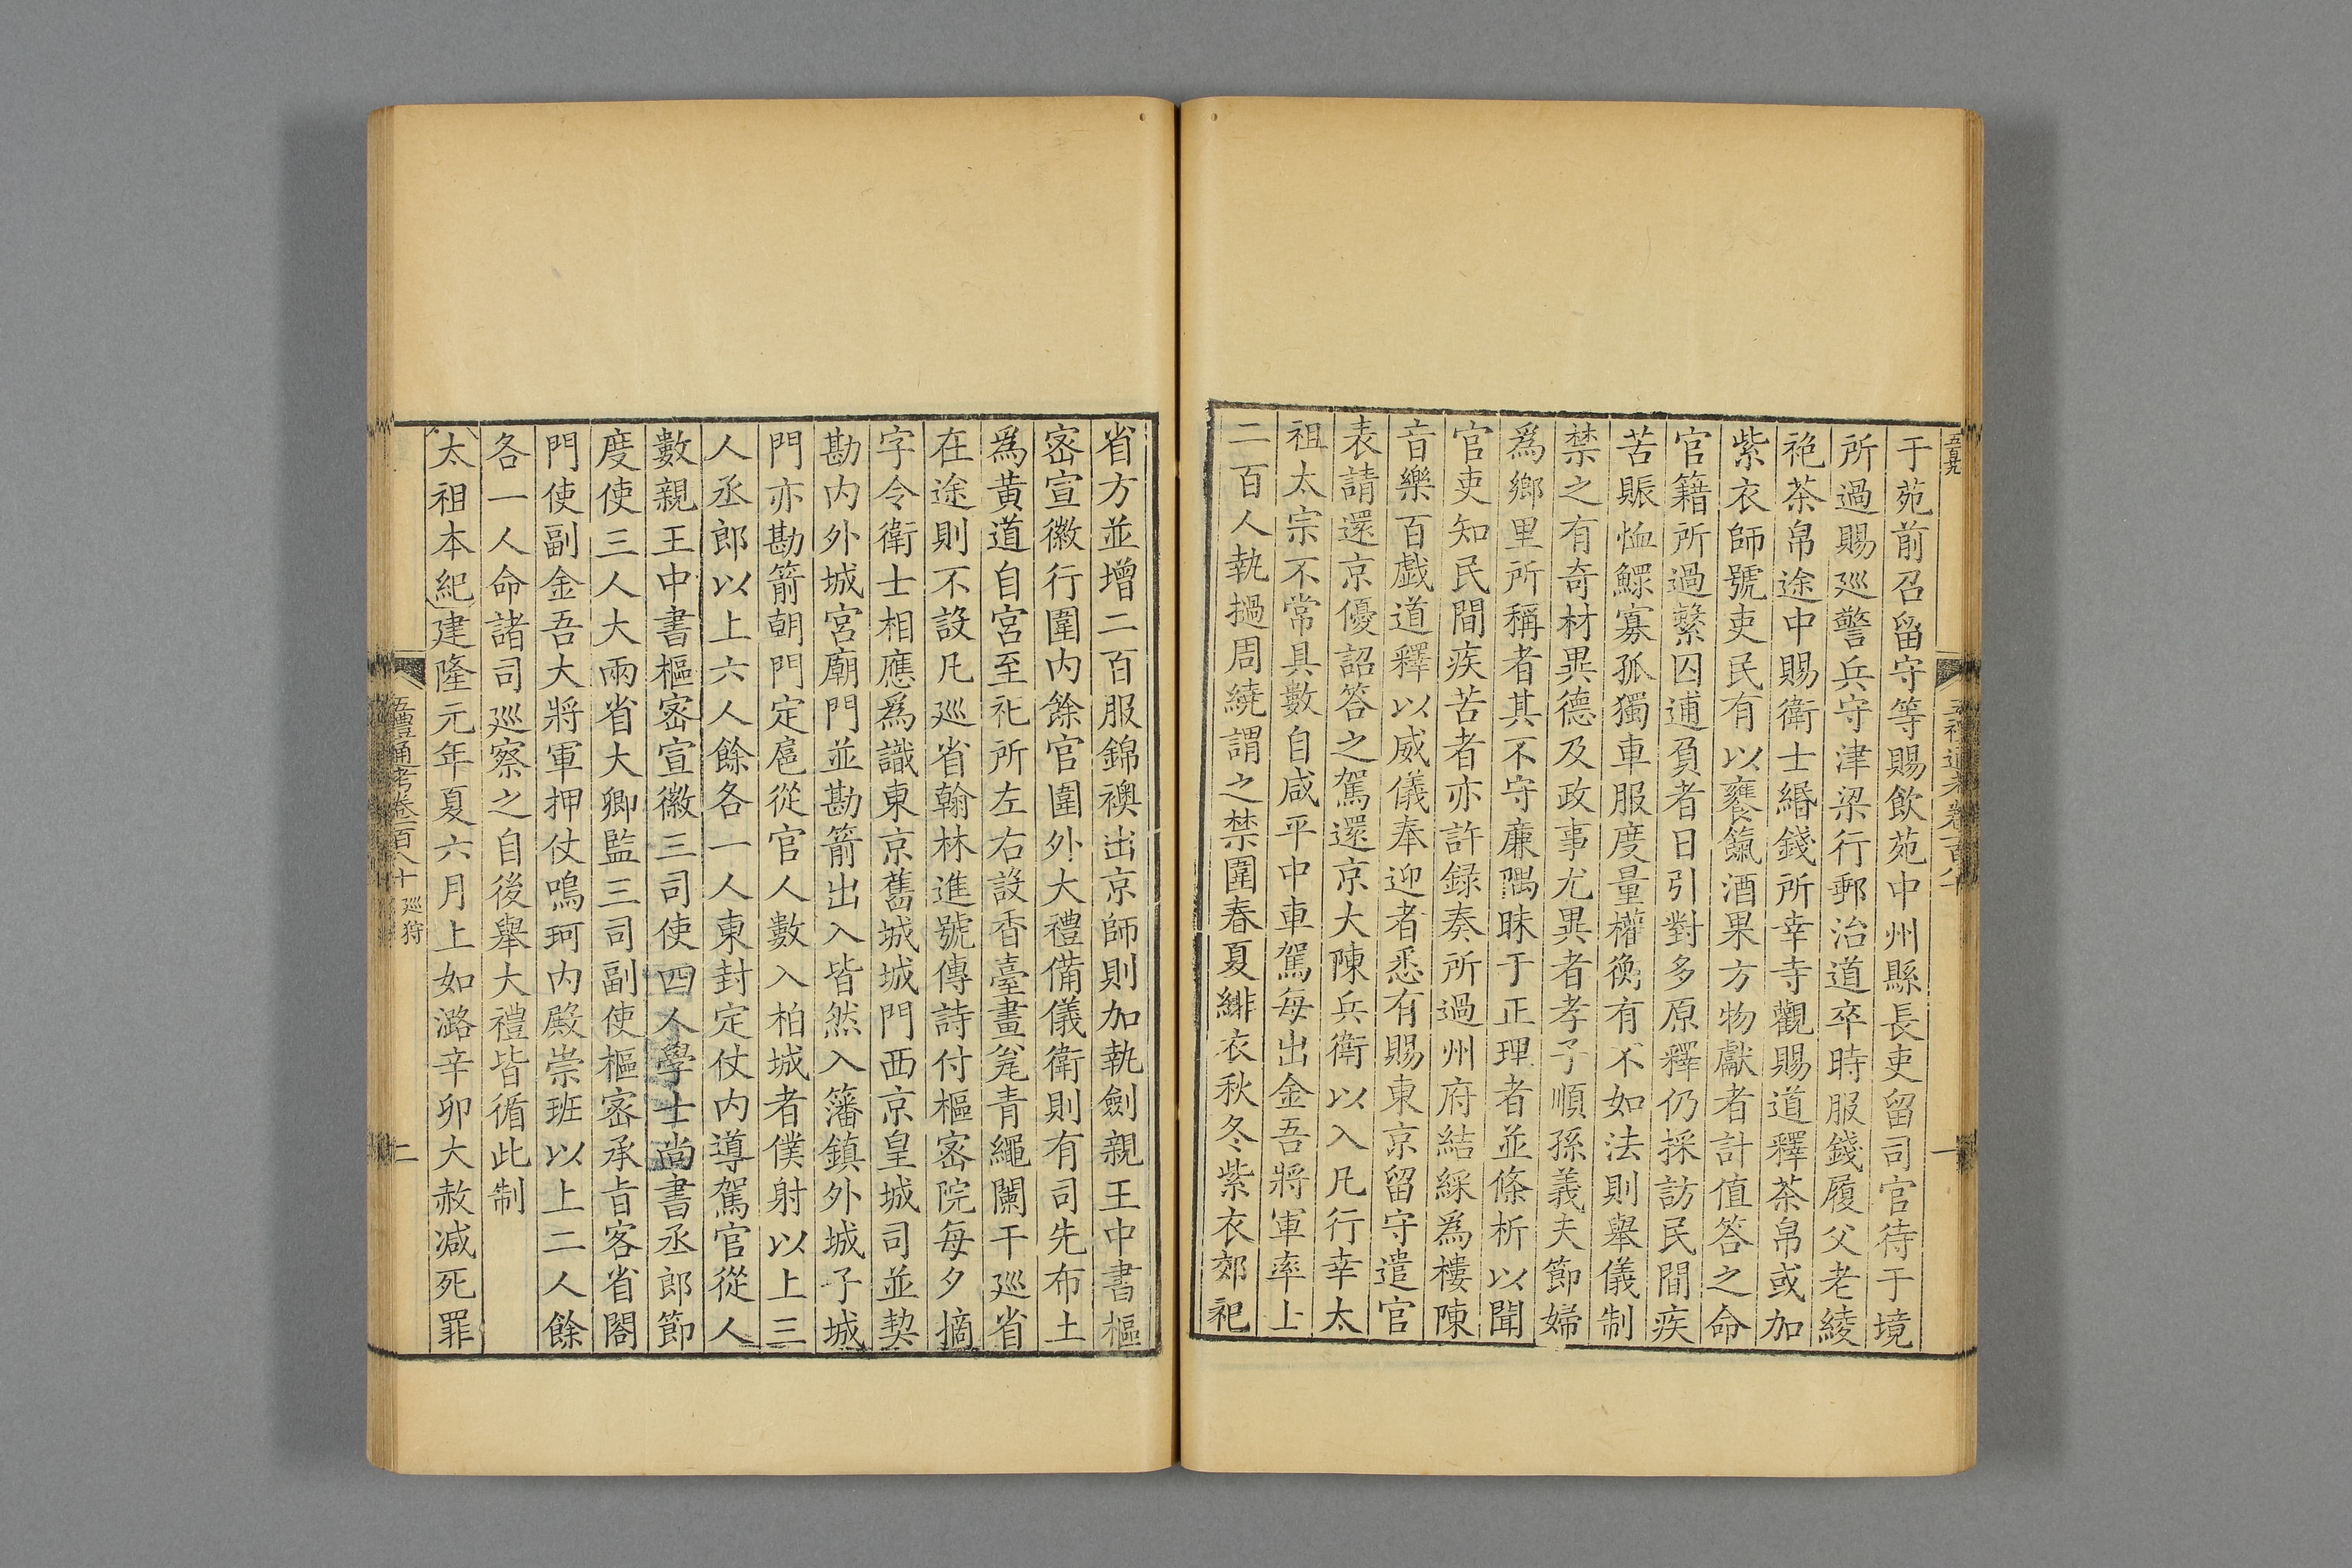 于苑前召留守等賜飲苑中州縣長吏留司官待于境
所過賜廵警兵守津梁行郵治道卒時服錢履父老綾
袍茶帛途中賜衛士緡錢所幸寺觀賜道釋茶帛或加
紫衣師號吏民有以饔餼酒果方物獻者計值答之命
官籍所過繫囚逋負者日引對多原釋仍採訪民間疾
苦賑恤鰥寡孤獨車服度量權衡有不如法則舉儀制
禁之有奇材異德及政事尤異者孝子順孫義夫節婦
爲鄉里所稱者其不守廉隅昧于正理者並條析以聞
官吏知民間疾苦者亦許録奏所過州府結綵爲樓陳
音樂百戲道釋以威儀奉迎者悉有賜東京留守遣官
表請還京優詔答之駕還京大陳兵衛以入凡行幸太
祖太宗不常具數自咸平中車駕每出金吾將軍率上
二百人執撾周繞謂之禁圍春夏緋衣秋冬紫衣郊祀
省方並增二百服錦襖出京師則加執劍親王中書樞
宻宣徽行圍内餘官圍外大禮備儀衛則有司先布土
爲黄道自宫至祀所左右設香臺畫瓮青繩闌干廵省
在途則不設凡廵省翰林進號傳詩付樞宻院每夕摘
字令衛士相應爲識東京舊城城門西京皇城司並契
勘内外城宫廟門並勘箭出入皆然入藩鎮外城子城
門亦勘箭朝門定扈從官人數入柏城者僕射以上三
人丞郎以上六人餘各一人東封定仗内導駕官從人
數親王中書樞宻宣徽三司使四人學士尚書丞郎節
度使三人大兩省大卿監三司副使樞宻承㫖客省閤
門使副金吾大將軍押仗鳴珂内殿崇班以上二人餘
各一人命諸司廵察之自後舉大禮皆循此制
太祖本紀建隆元年夏六月上如潞辛卯大赦减死罪
五禮通考卷一百八十 廵狩
二